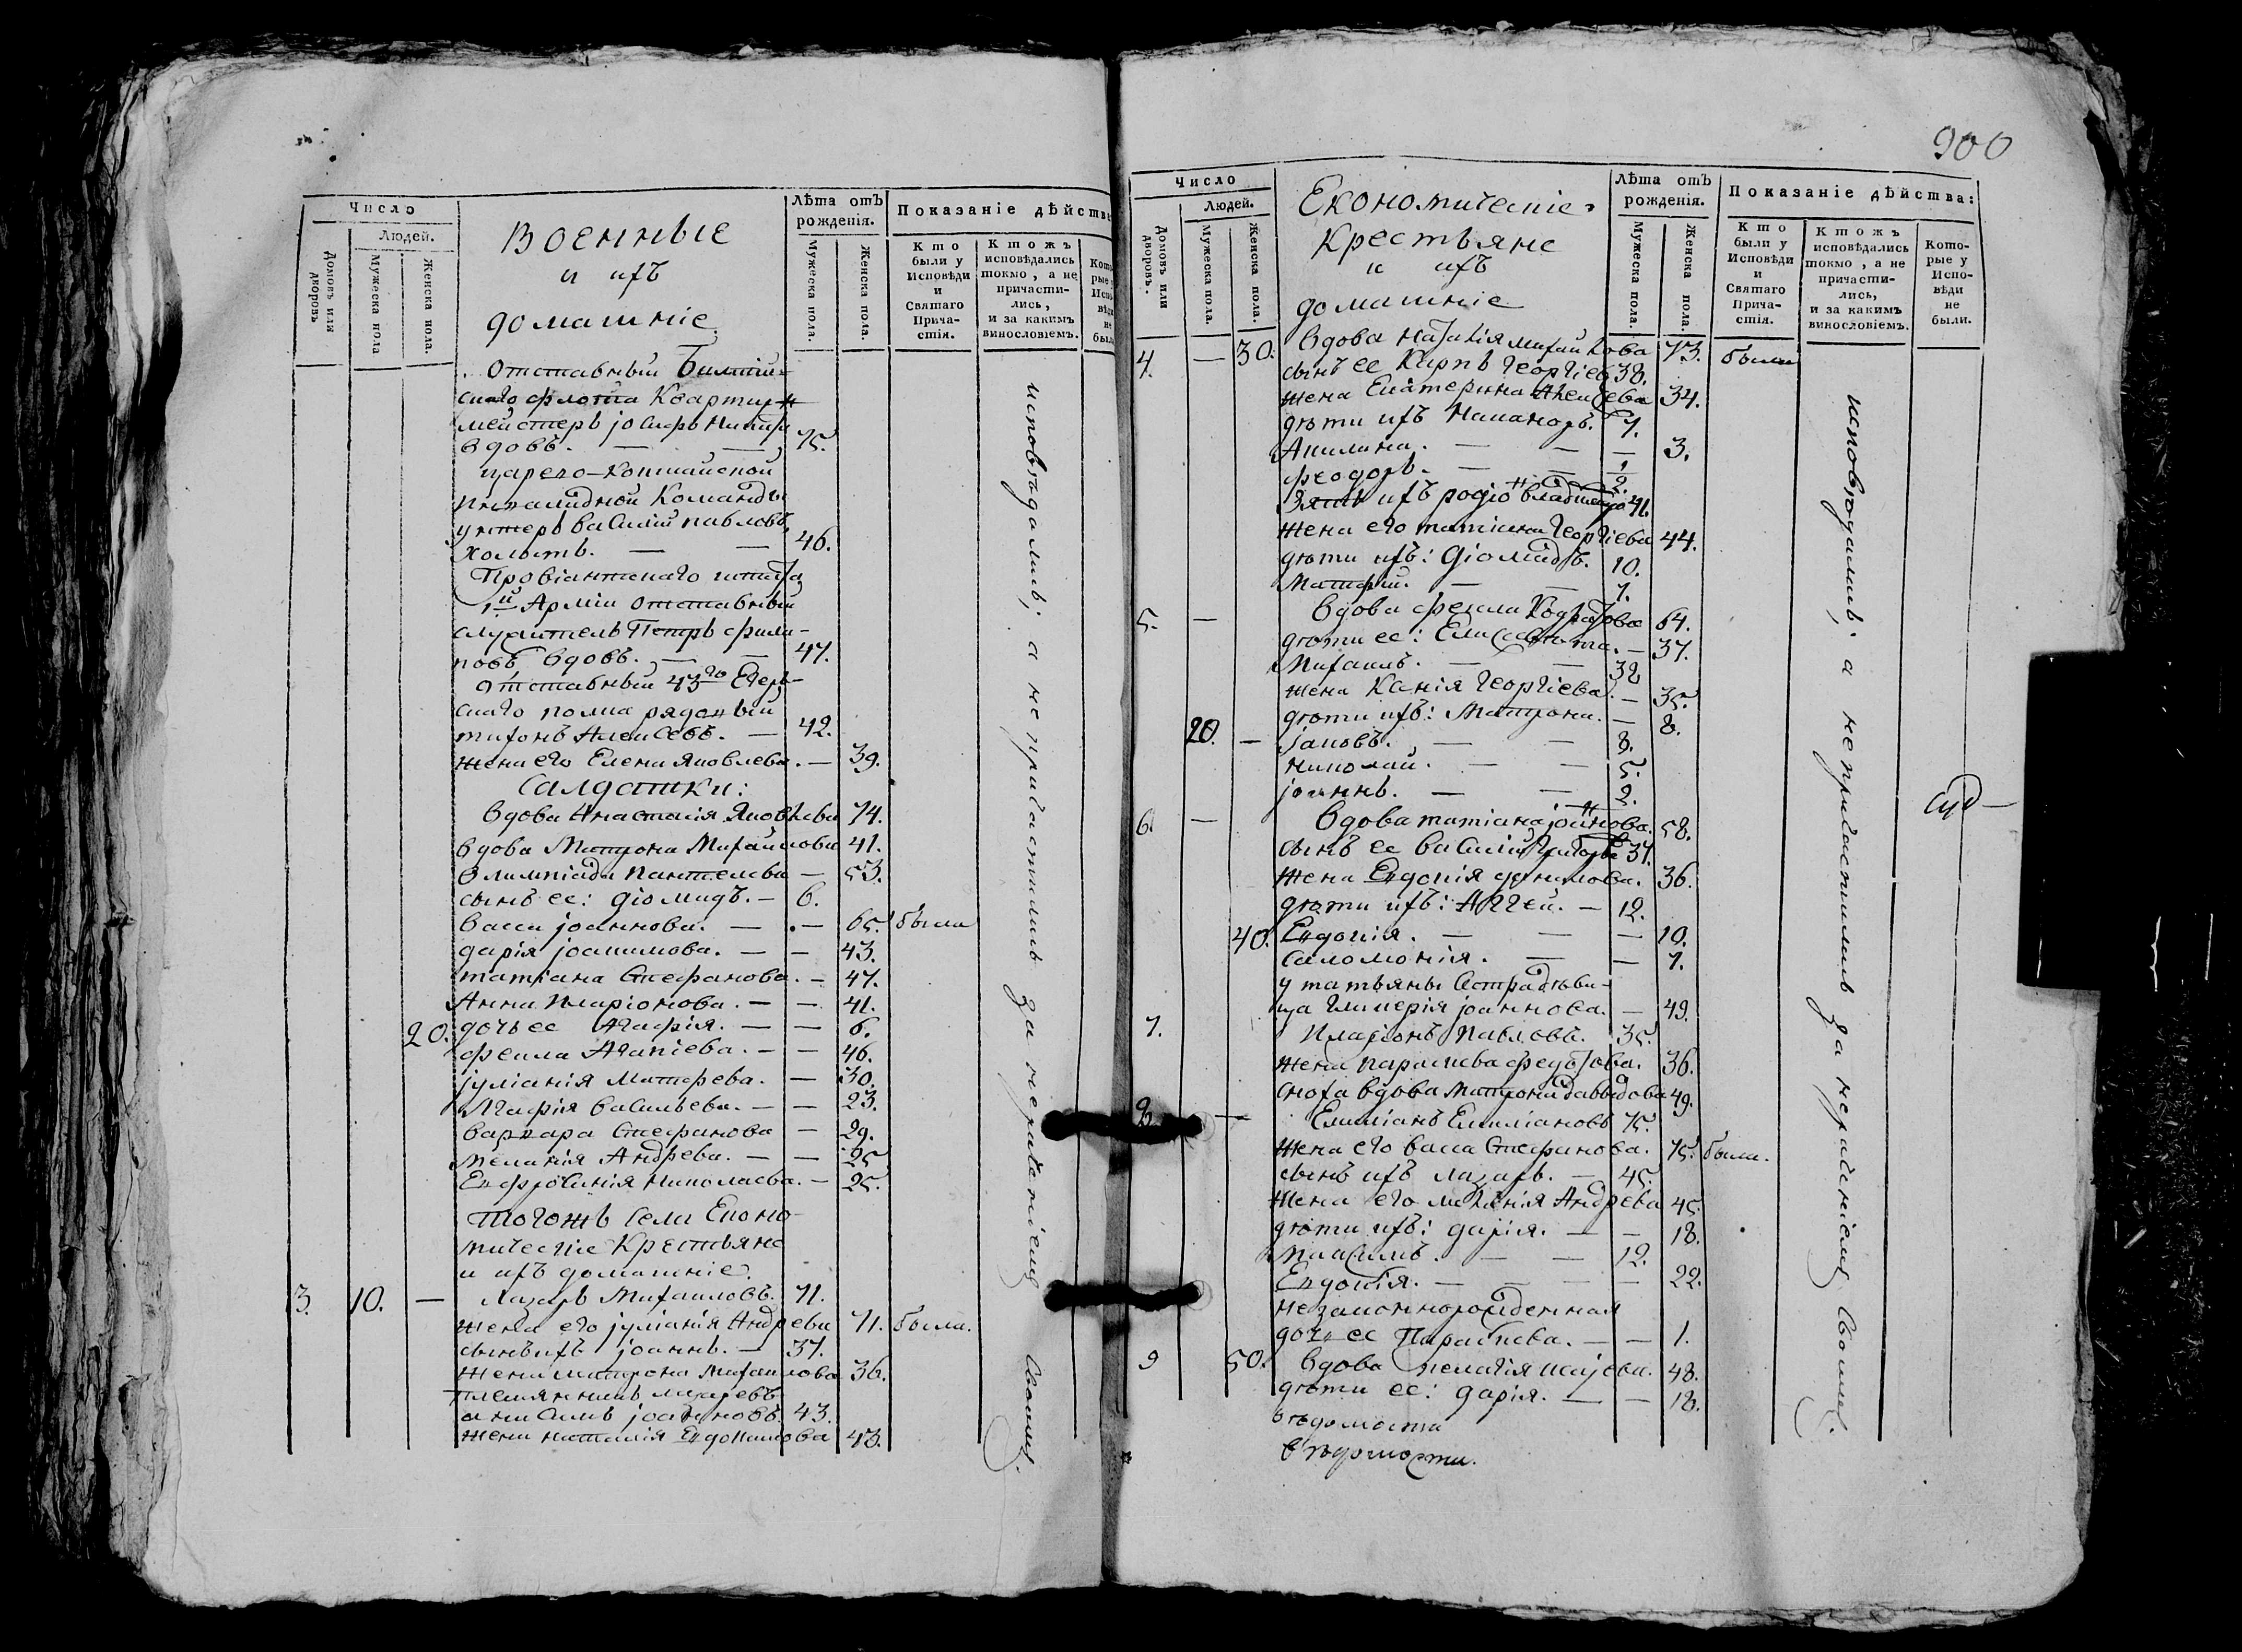 Число
Людей.
Домовъ или дворовъ
Мужеска пола
Женска пола.
Военные
и ихъ
домашніе
Лѣта отъ рожденія.
Мужеска пола.
Женска пола.
Показаніе дѣйства
Кто были у Исповѣди и Святаго Причастія.
Ктожъ исповѣдались токмо, а не причастились, и за какимъ винословіемъ.
Отставный Балтій-
скаго флота Квартир-
мейстеръ іосифъ
вдовъ. — — 75.
Царево-Кокшайской
Инвалидной Команды
унтеръ василій павловъ
холостъ. — — 46.
Провіантскаго штата
1й Арміи отставный
служитель Петръ фили-
повъ вдовъ. — — 47.
отставный 43го Егер-
скаго полка рядовый
тихонъ Алексѣевъ. — 42.
жена его Елена Яковлева. — 39.
Салдатки:
вдова Анастасія Яковлева 74.
вдова Матрона Михайлова 41.
Олимпіада Пантелева — 53.
сынъ ее: діомидъ. — 6.
васса іоаннова. — — 65. была
дарія іоакимова. — — 43.
татіана Стефанова. — 47.
Анна Иларіонова. — — 41.
20. дочь ее Агафія. — — 6.
фекла Агапіева. — — 46.
іуліанія Матфеева. — 30.
Агафія васильева. — — 23.
варвара Стефанова — 29.
меланія Андрева. — — 25
Евфросинія николаева. — 25.
Тогожъ села Еконо-
мическіе Крестьяне
и ихъ домашніе.
3. 10. — Лазарь Михаиловъ. 71.
жена его іуліанія Андрева 71. была.
сынъ ихъ іоаннъ. — 37.
жена матрона михаилова 36.
племянникъ лазаревъ
іоанновъ. 43.
жена наталія Евдокимова 43.
исповѣдались; а не причастились за нерачѣніемъ своимъ.
900
Число
Людей.
Домовъ или дворовъ.
Мужеска пола.
Женска пола.
Економическіе
Крестьяне
и ихъ
домашніе
Лѣта отъ рожденія.
Мужеска пола.
Женска пола.
Показаніе дѣйства:
Кто были у Исповѣди и Святаго Причастія.
Ктожъ исповѣдались токмо, а не причастились, и за какимъ винословіемъ.
Которые у Исповѣди не были.
4. — 30. вдова наталія михайлова 73. была
сынъ ее Карпъ Георгіевъ 38.
жена Екатерина Алексеева 34.
дѣти ихъ Никаноръ. 7.
Акилина. — — — 3.
феодоръ. — — 1/2.
Зять ихъ родіонъ 41.
жена его татіана Георгіева 44.
дѣти ихъ: діомидъ. 10.
Матфей. — — 7.
5. — вдова фекла Кодратова 64.
дѣти ее: Елисавета. — 37.
Михаилъ. — — 32
жена Ксенія Георгіева. — 35.
дѣти ихъ: Матрона. — 8.
20. — іаковъ. — — 8.
николай. — — 5.
іоаннъ. — — 2.
6. — вдова татіана іоаннова. 58.
сынъ ее василій Григорьевъ 37.
жена Евдокія данилова. 36.
дѣти ихъ: Аггей. — 12.
40. Евдокія. — — — 10.
Саломонія. — — 7.
у татьяны
Гликерія іоаннова. — 49.
7. Иларіонъ павловъ. 35.
жена параскева федотова. 36.
сноха вдова матрона давыдова 49.
8. — Емиліанъ Емиліановъ 75.
жена его васса Стефанова. 75. была.
сынъ ихъ лазарь. — 45.
жена его меланія Андрева 45.
дѣти ихъ: дарія. — — 18.
максимъ. — — 12.
Евдокія. — — — 22.
незаконнорожденная
дочь ее Параскева. — — 1.
9 50. вдова пелагія исаева. 48.
дѣти ее: дарія. — — 18.
вѣдомости
вѣдомости.
исповѣдались; а не причастились за нерачѣніемъ своимъ.